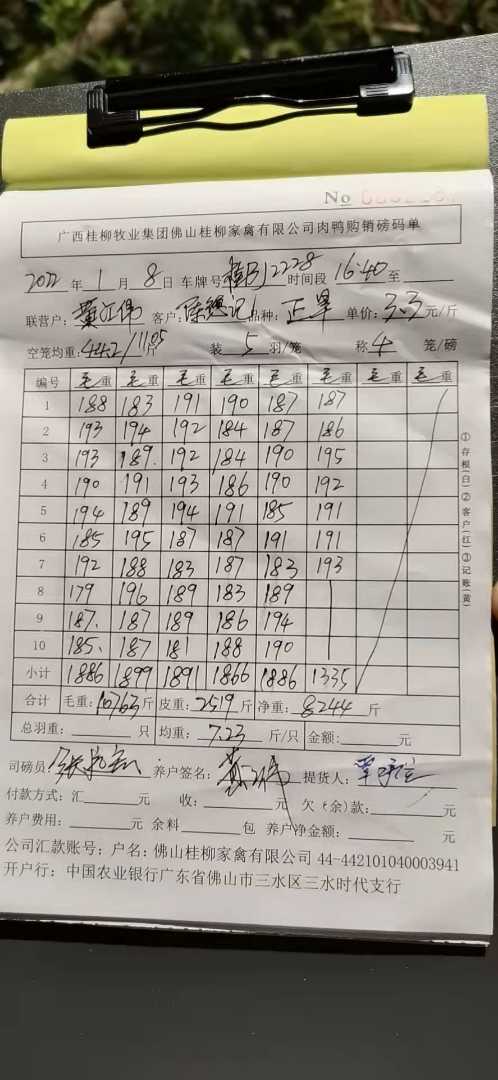 No
广西桂柳牧业集团佛山桂柳家禽有限公司肉鸭购销磅码单
2022 年 1 月 8 日 车牌号 J2228 时间段 16:40 至
联营户: 黄江伟 客户: 陈 记 品种: 正早 单价: 3.3 元/斤
空笼均重: 442/1105 斤 装 5 羽/笼 称 4 笼/磅
编号 毛重 毛重 毛重 毛重 毛重 毛重 毛重 毛重
1 188 183 191 190 187 187
2 193 194 192 184 187 186
3 193 189. 192 184 190 195
4 190 191 193 186 190 192
5 194 189 194 191 185 191
6 185 195 187 187 191 191
7 192 188 183 187 183 193
8 179 196 189 183 189
9 187. 187 189 186 194
10 185. 187 181 188 190
小计 1886 1899 1891 1866 1886 1335
合计 毛重: 10763 斤 皮重: 2519 斤 净重: 8244 斤
总羽重: 只 均重: 7.23 斤/只 金额: 元
司磅员 养户签名: 提货人:
付款方式: 汇 元 收: 元 欠(余)款: 元
养户费用: 元 余料 包 养户净金额: 元
公司汇款账号: 户名: 佛山桂柳家禽有限公司 44-442101040003941
开户行: 中国农业银行广东省佛山市三水区三水时代支行
①存根(白)②客户(红)③记账(黄)